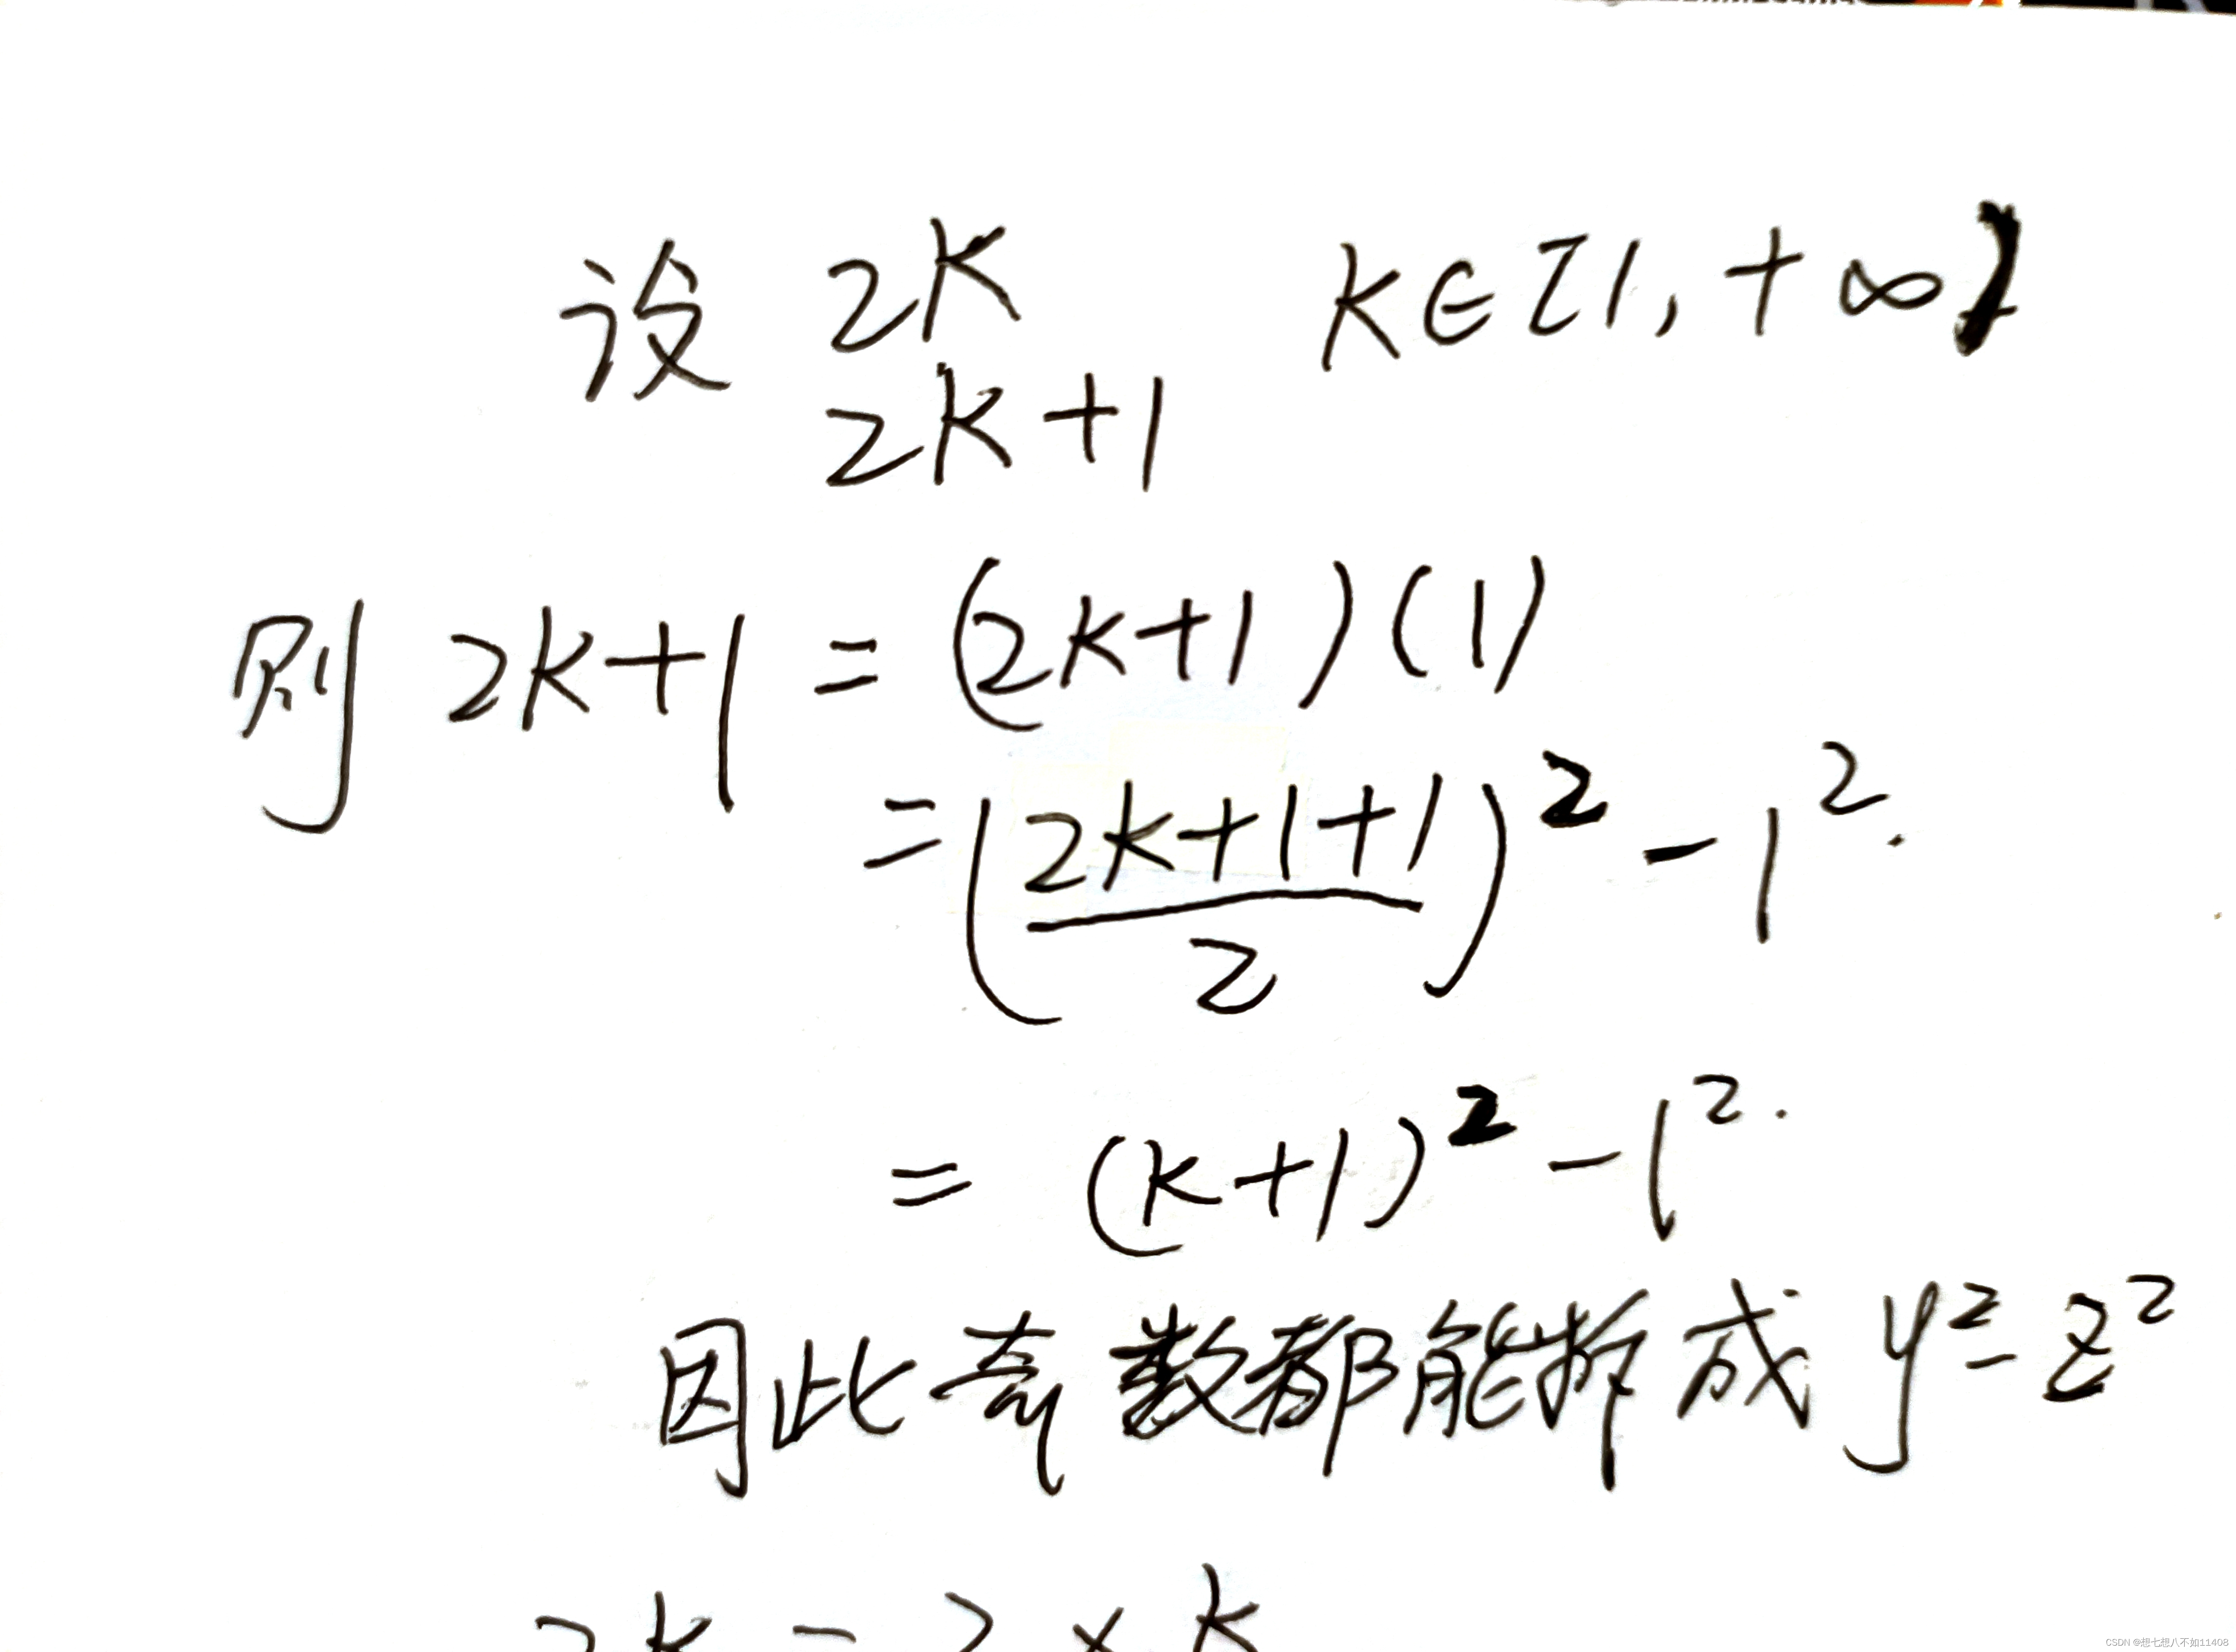 设 2K K∈[1, +∞)
2K+1
则 2K+1 = (2K+1)(1)
= ((2K+1+1)/2)² - 1².
= (K+1)² - 1².
因此奇数都能拆成 y² - z²
2K = 2 × K
CSDN @想七想八不如11408